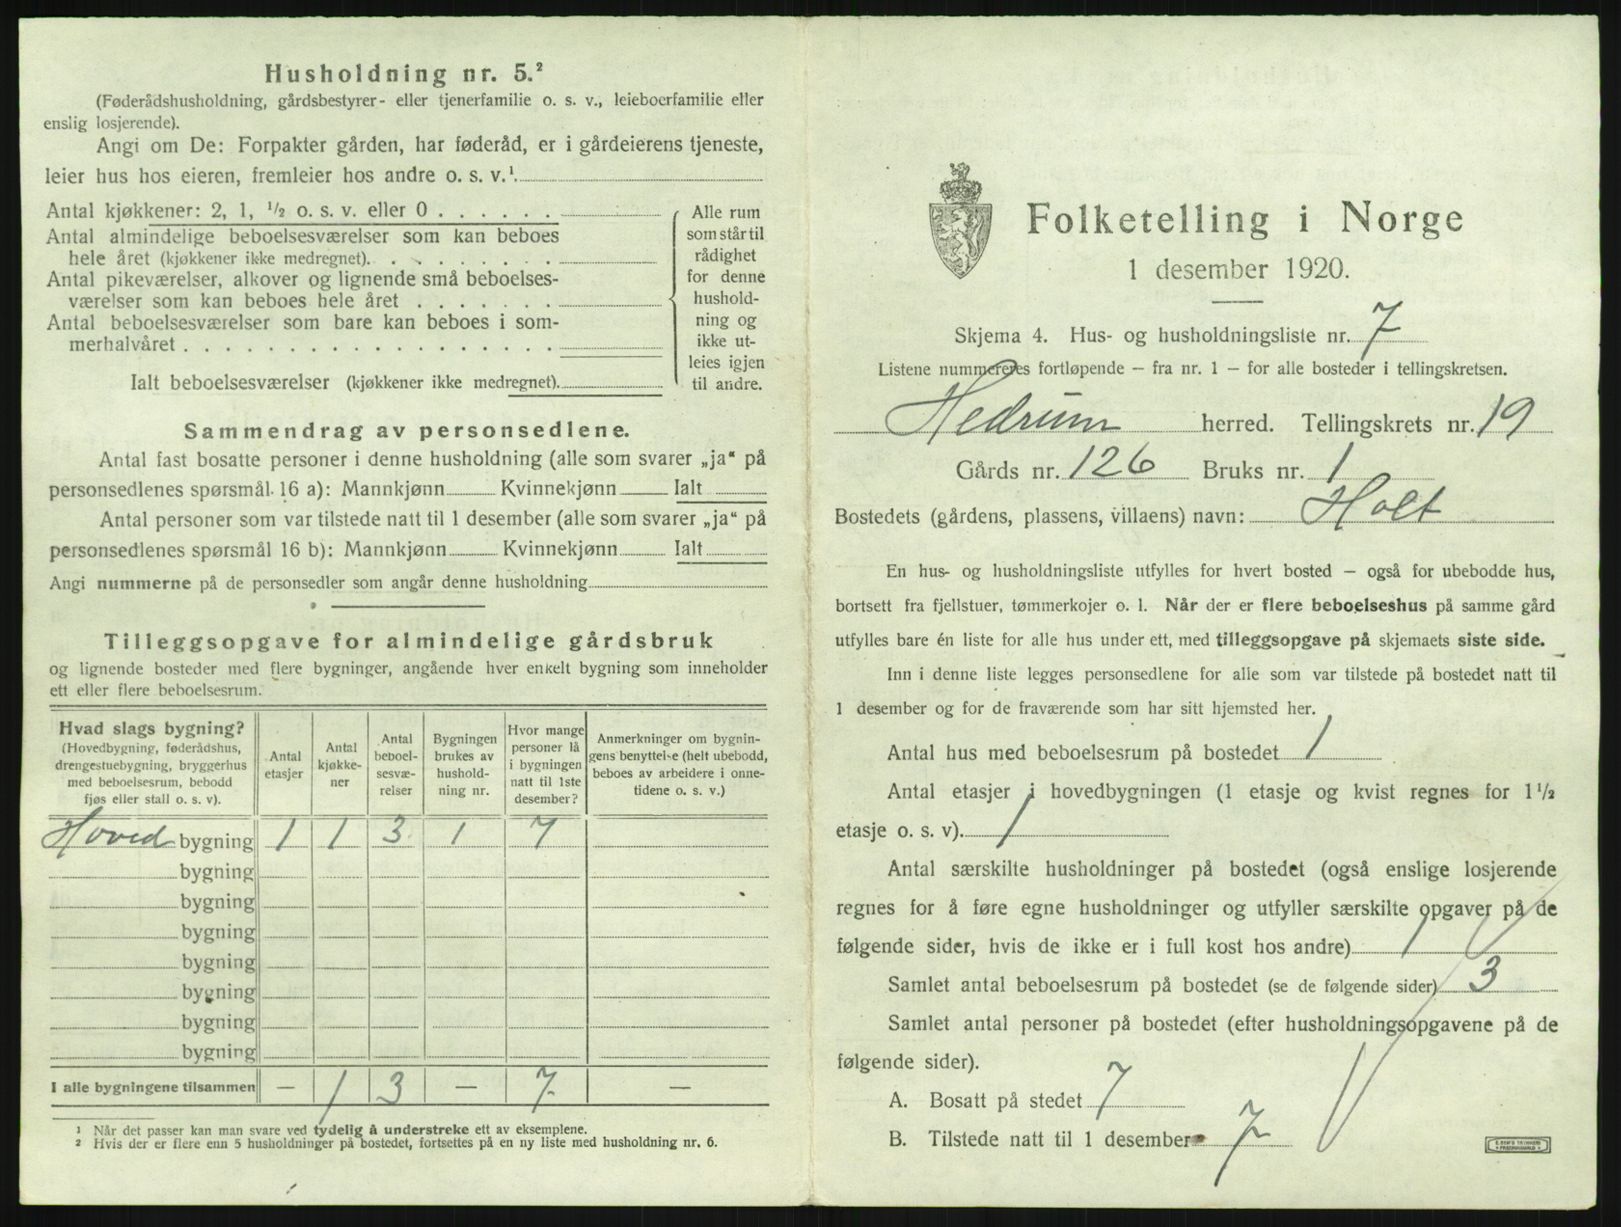 Husholdning nr. 5.²
(Føderådshusholdning, gårdsbestyrer- eller tjenerfamilie o. s. v., leieboerfamilie eller
enslig losjerende).
Angi om De: Forpakter gården, har føderåd, er i gårdeierens tjeneste,
leier hus hos eieren, fremleier hos andre o. s. v.¹
Antal kjøkkener: 2, 1, ½ o. s. v. eller 0
Antal almindelige beboelsesværelser som kan beboes
hele året (kjøkkener ikke medregnet)
Antal pikeværelser, alkover og lignende små beboelses-
værelser som kan beboes hele året
Antal beboelsesværelser som bare kan beboes i som-
merhalvåret
Ialt beboelsesværelser (kjøkkener ikke medregnet)
Alle rum
som står til
rådighet
for denne
hushold-
ning og
ikke ut-
leies igjen
til andre.
Sammendrag av personsedlene.
Antal fast bosatte personer i denne husholdning (alle som svarer „ja“ på
personsedlenes spørsmål 16 a): Mannkjønn Kvinnekjønn Ialt
Antal personer som var tilstede natt til 1 desember (alle som svarer „ja“ på
personsedlenes spørsmål 16 b): Mannkjønn Kvinnekjønn Ialt
Angi nummerne på de personsedler som angår denne husholdning
Tilleggsopgave for almindelige gårdsbruk
og lignende bosteder med flere bygninger, angående hver enkelt bygning som inneholder
ett eller flere beboelsesrum.
Hvad slags bygning?
(Hovedbygning, føderådshus,
drengestuebygning, bryggerhus
med beboelsesrum, bebodd
fjøs eller stall o. s. v).
Antal
etasjer
Antal
kjøkke-
ner
Antal
beboel-
sesvæ-
relser
Bygningen
brukes av
hushold-
ning nr.
Hvor mange
personer lå
i bygningen
natt til 1ste
desember?
Anmerkninger om bygnin-
gens benyttelse (helt ubebodd,
beboes av arbeidere i onne-
tidene o. s. v.)
Hoved bygning 1 1 3 1 7
bygning
bygning
bygning
bygning
bygning
bygning
bygning
I alle bygningene tilsammen — 1 3 — 7 —
¹ Når det passer kan man svare ved tydelig å understreke ett av eksemplene.
² Hvis der er flere enn 5 husholdninger på bostedet, fortsettes på en ny liste med husholdning nr. 6.
Folketelling i Norge
1 desember 1920.
Skjema 4. Hus- og husholdningsliste nr. 7
Listene nummereres fortløpende — fra nr. 1 — for alle bosteder i tellingskretsen.
Hedrum herred. Tellingskrets nr. 19
Gårds nr. 126 Bruks nr. 1
Bostedets (gårdens, plassens, villaens) navn: Holt
En hus- og husholdningsliste utfylles for hvert bosted — også for ubebodde hus,
bortsett fra fjellstuer, tømmerkojer o. l. Når der er flere beboelseshus på samme gård
utfylles bare én liste for alle hus under ett, med tilleggsopgave på skjemaets siste side.
Inn i denne liste legges personsedlene for alle som var tilstede på bostedet natt til
1 desember og for de fraværende som har sitt hjemsted her.
Antal hus med beboelsesrum på bostedet 1
Antal etasjer i hovedbygningen (1 etasje og kvist regnes for 1½
etasje o. s. v). 1
Antal særskilte husholdninger på bostedet (også enslige losjerende
regnes for å føre egne husholdninger og utfyller særskilte opgaver på de
følgende sider, hvis de ikke er i full kost hos andre) 1
Samlet antal beboelsesrum på bostedet (se de følgende sider) 3
Samlet antal personer på bostedet (efter husholdningsopgavene på de
følgende sider).
A. Bosatt på stedet 7
B. Tilstede natt til 1 desember 7